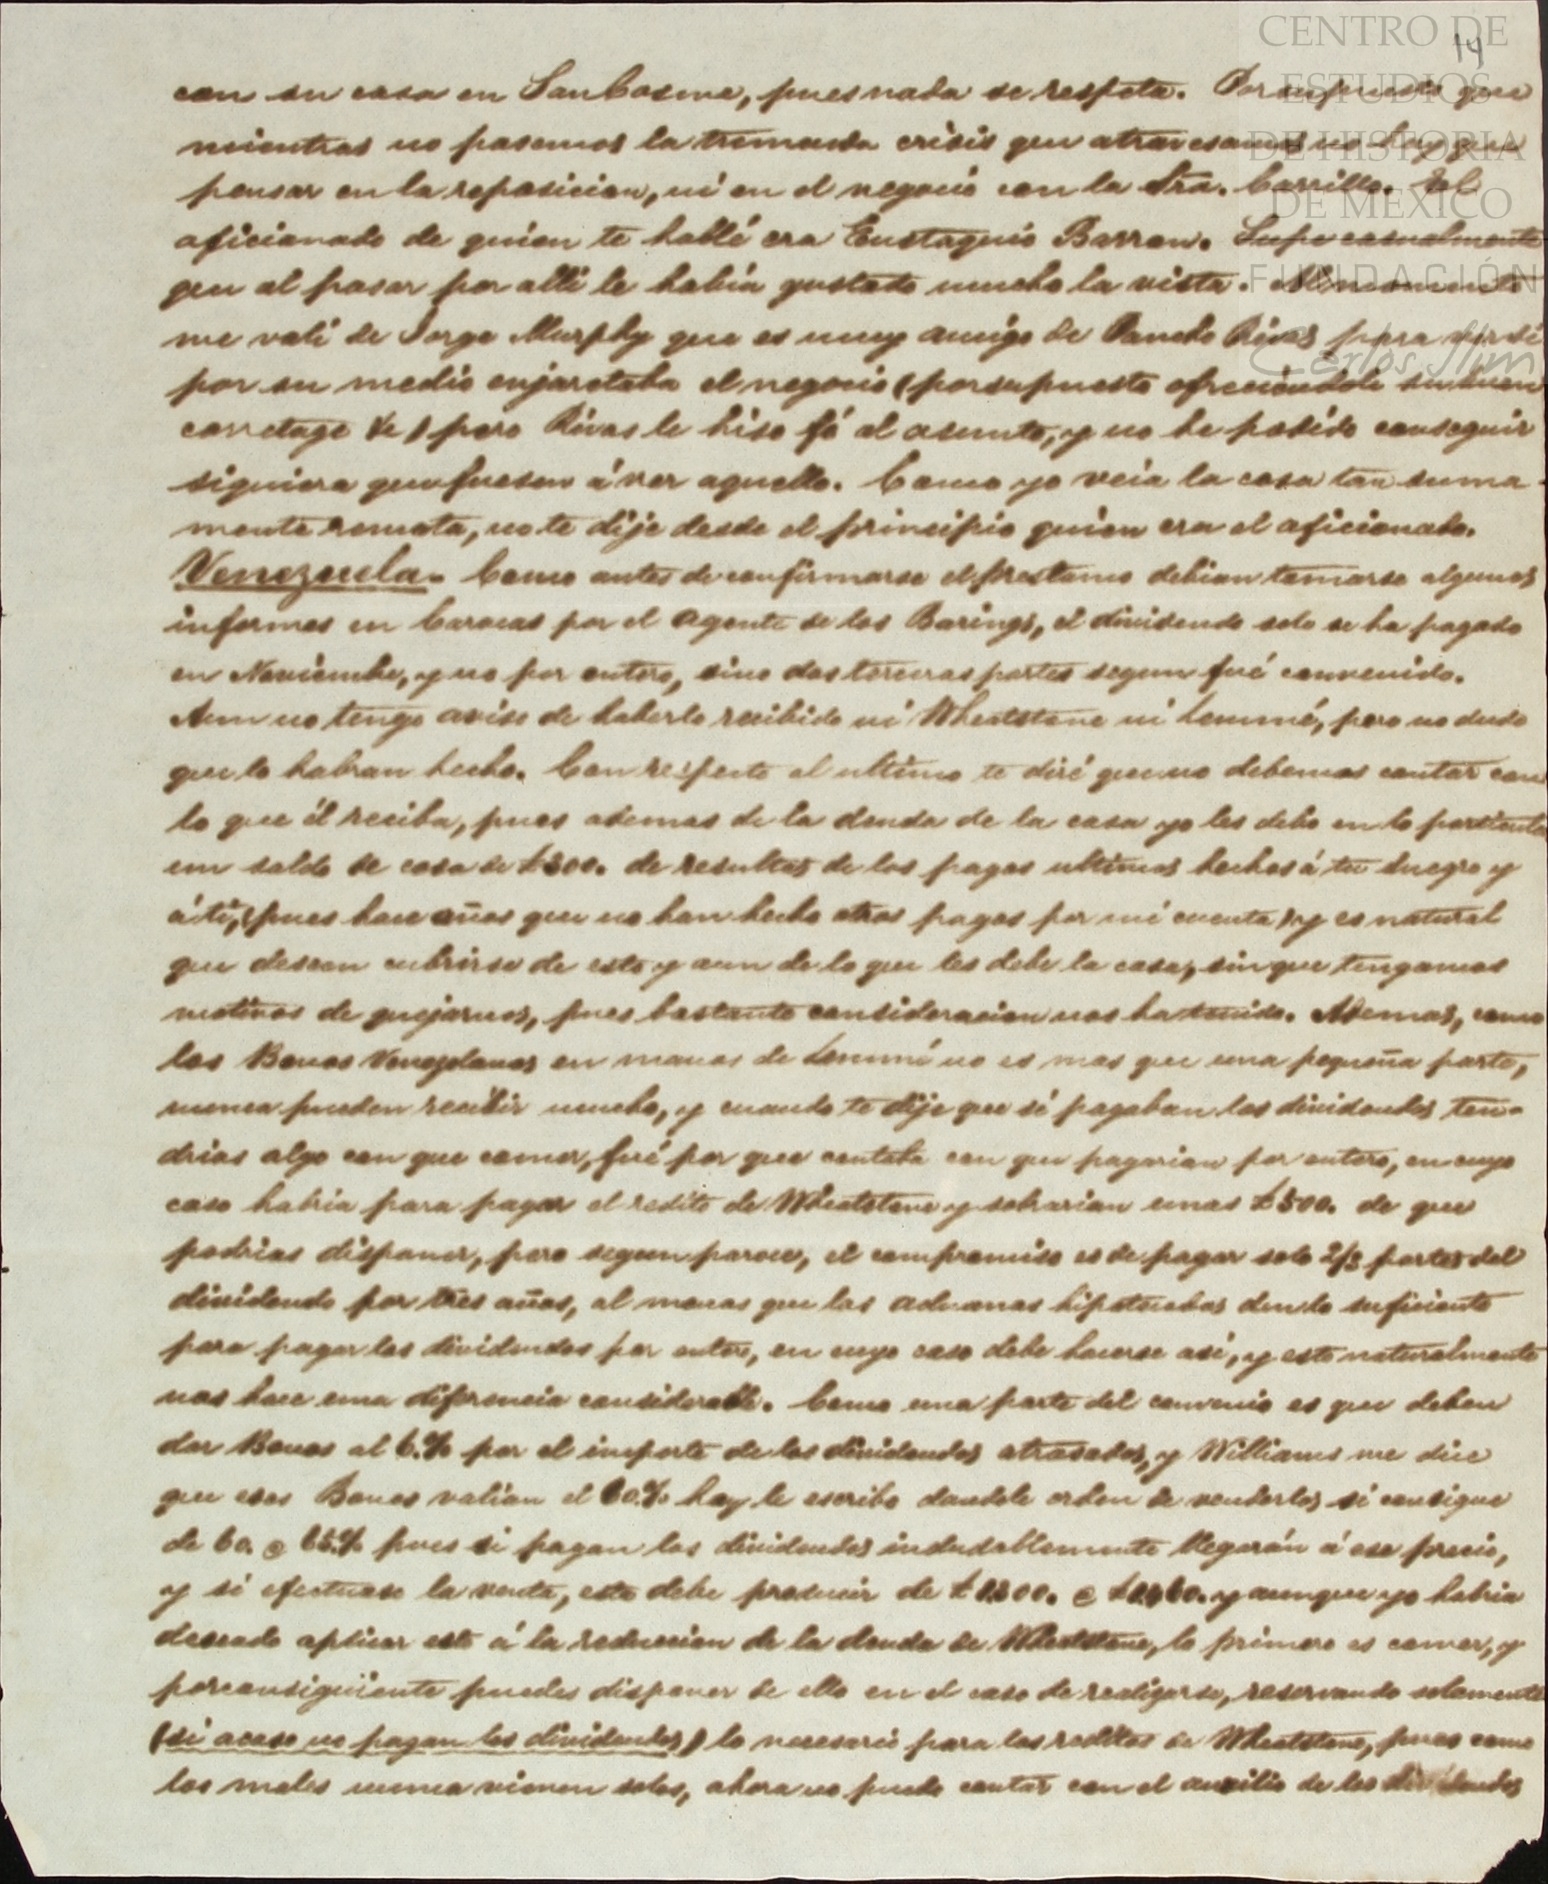 CENTRO DE
ESTUDIOS
DE HISTORIA
DE MÉXICO
FUNDACIÓN
Carlos Slim
14
con su casa en San Cosme, pues nada se respeta. Por supuesto que
mientras no pasemos la tremenda crisis que atravesamos no hay que
pensar en la reposicion, ni en el negocio con la Sra. Carrillo. El
aficionado de quien te hablé era Eustaquio Barron. Supe casualmente
que al pasar por alli le habia gustado mucho la vista. Al momento
me vali de Jorge Murphy que es muy amigo de Pancho Rivas para ver si
por su medio enjaretaba el negocio (por supuesto ofreciendole su buen
corretage &c) pero Rivas le hiso fó al asunto, y no he podido conseguir
siquiera que fuesen á ver aquello. Como yo veia la cosa tan suma-
mente remota, no te dije desde el principio quien era el aficionado.
Venezuela. Como antes de confirmarse el prestamo debian tomarse algunos
informes en Caracas por el Agente de los Barings, el dividendo solo se ha pagado
en Noviembre, y no por entero, sino dos terceras partes segun fué convenido.
Aun no tengo aviso de haberlo recibido ni Wheatstone ni Lemmé, pero no dudo
que lo habran hecho. Con respecto al ultimo te diré que no debemos contar con
lo que él reciba, pues ademas de la deuda de la casa yo les debo en lo particular
un saldo de cosa de £300. de resultas de los pagos ultimos hechos á tu suegro y
á ti, (pues hace años que no han hecho otros pagos por mi cuenta) y es natural
que deseen cubrirse de esto y aun de lo que les debe la casa, sin que tengamos
motivos de quejarnos, pues bastante consideracion nos ha tenido. Ademas, como
los Bonos Venezolanos en manos de Lemmé no es mas que una pequeña parte,
nunca pueden recibir mucho, y cuando te dije que si pagaban los dividendos ten-
drias algo con que comer, fué por que contaba con que pagarian por entero, en cuyo
caso habria para pagar el redito de Wheatstone y sobrarian unas £500. de que
podrias disponer, pero segun parece, el compromiso es de pagar solo 2/3 partes del
dividendo por tres años, al menos que las aduanas hipotecadas den lo suficiente
para pagar los dividendos por entero, en cuyo caso debe hacerse asi, y esto naturalmente
nos hace una diferencia considerable. Como una parte del convenio es que deben
dar Bonos al 6.% por el importe de los dividendos atrasados, y Williams me dice
que esos Bonos valian el 60.% hoy le escribo dandole orden de venderlos si consigue
de 60. @ 65.% pues si pagan los dividendos indudablemente llegarán á ese precio,
y si efectuase la venta, esta debe producir de y aunque yo habria
deseado aplicar esto á la reduccion de la deuda de Wheatstone, lo primero es comer, y
por consiguiente puedes disponer de ello en el caso de realizarse, reservando solamente
(si acaso no pagan los dividendos) lo necesario para los reditos de Wheatstone, pues como
los males nunca vienen solos, ahora no puedo contar con el auxilio de los dividendos